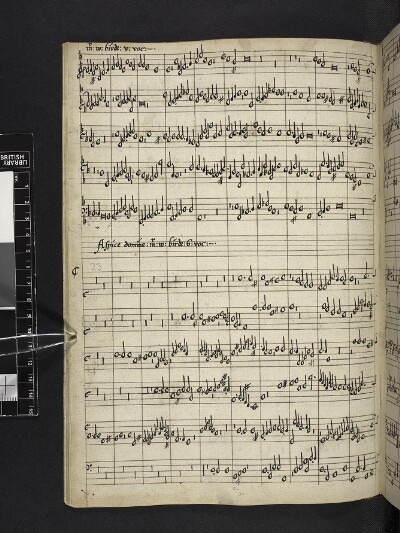 m: w: birde: v: voc:
Aspice domine: m: w: birde: 6: voc:
23
BRITISH
LIBRARY